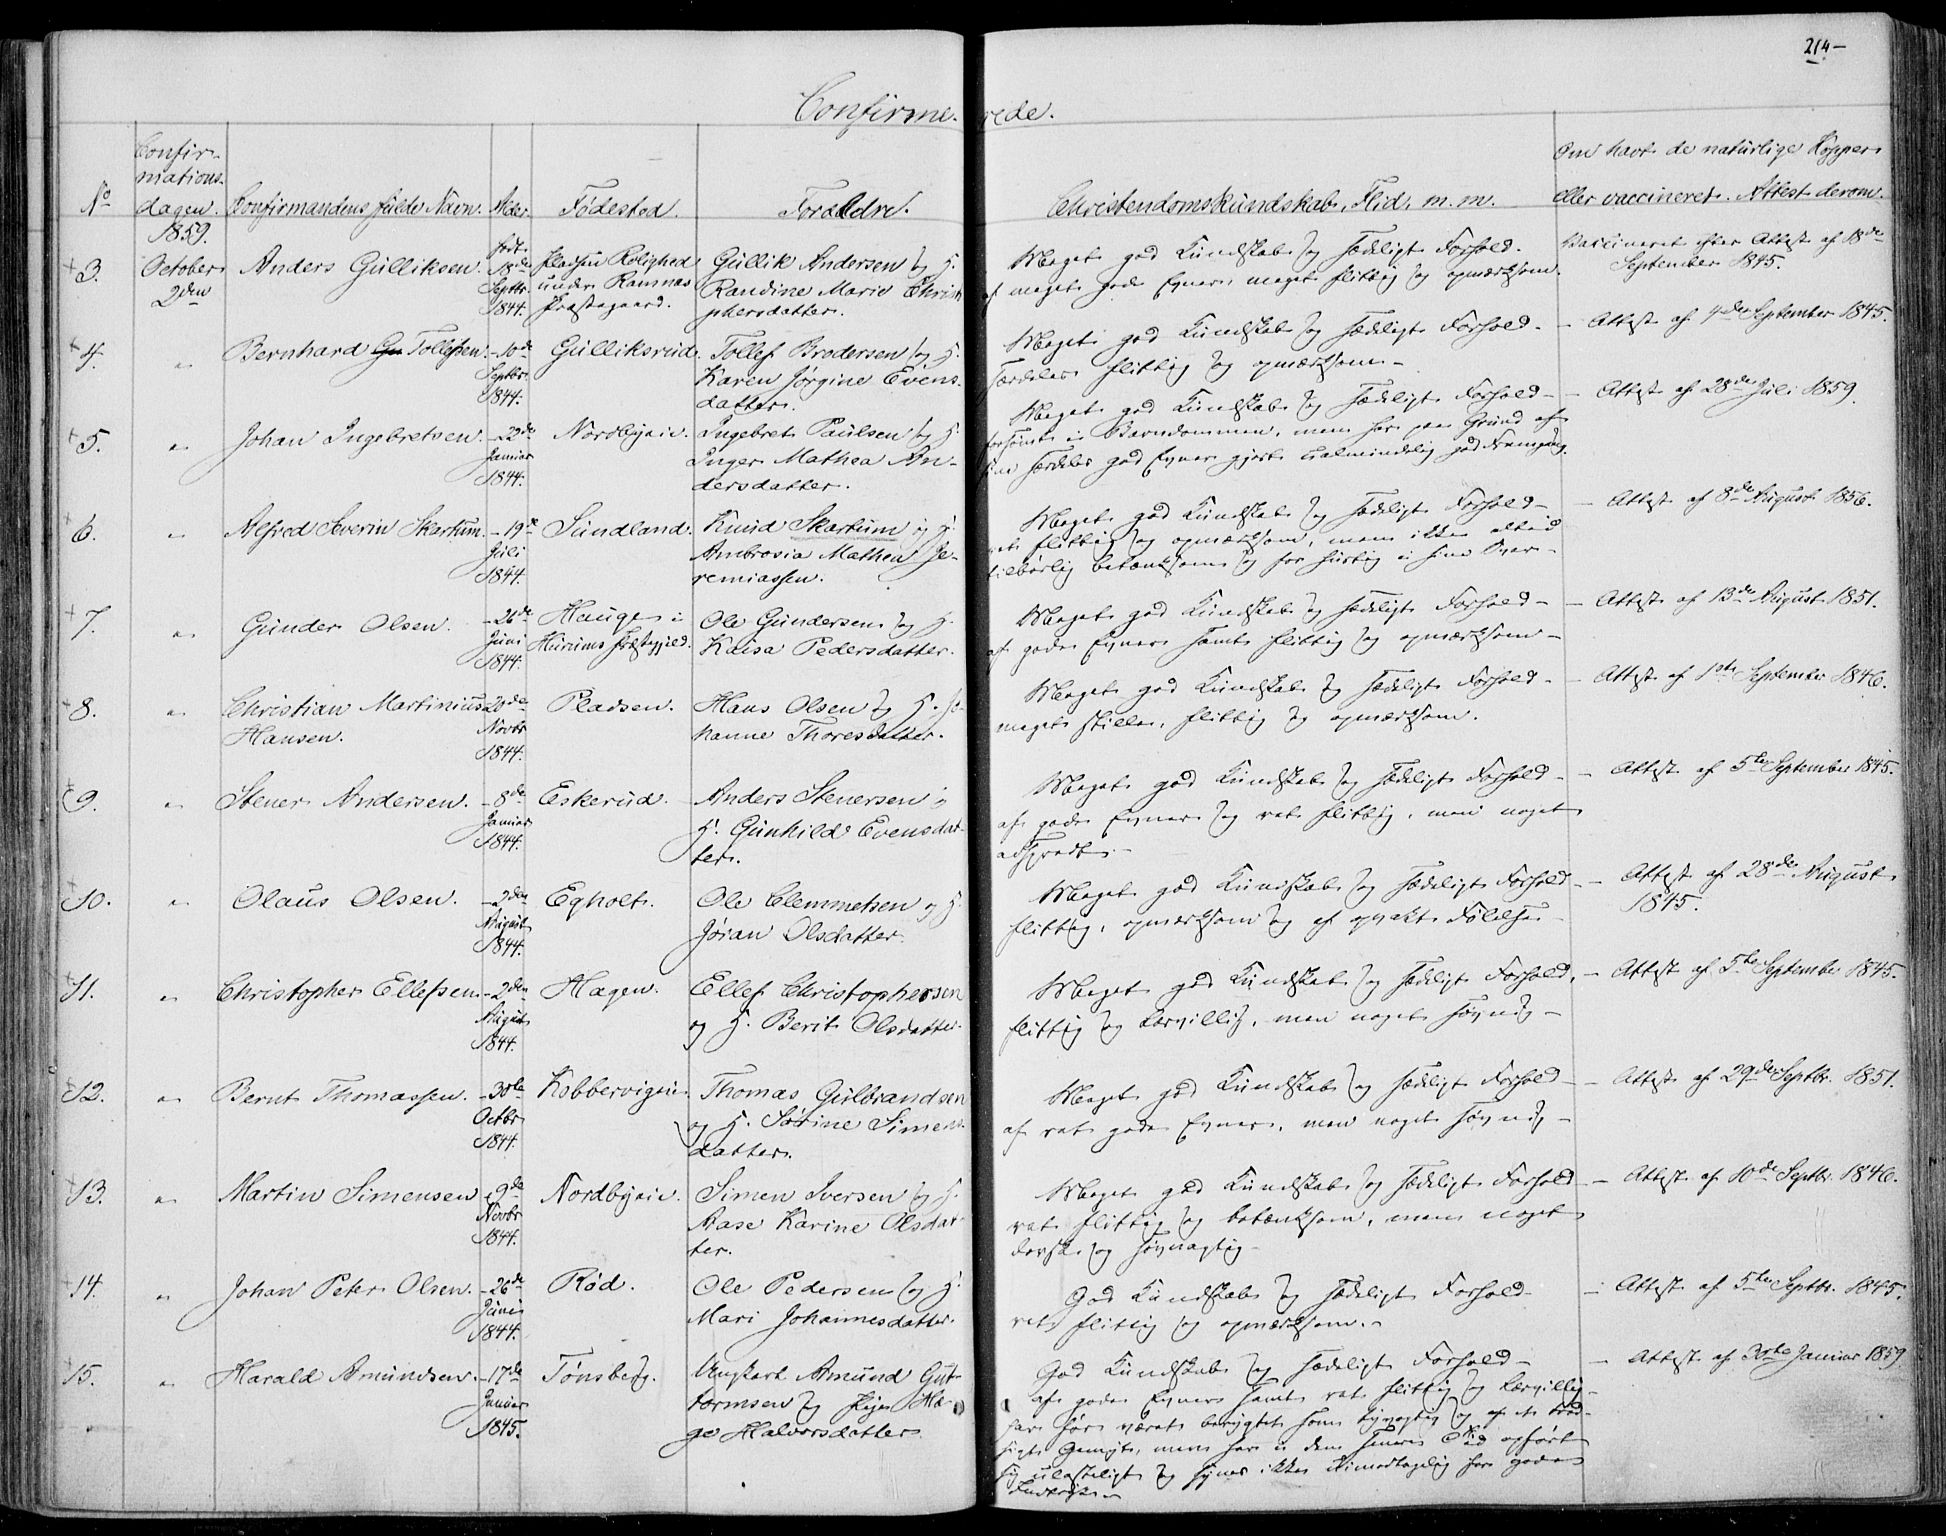 214-
Confirmerede.
No
Confirmationsdagen.
Confirmandens fulde Navn.
Alder.
Fødested.
Forældre.
Christendomskundskab, Flid, m. m.
Om havt de naturlige Kopper
eller vaccineret. Attest derom.
1859.
3. October 2den
Anders Gulliksen.
født 18de Septbr. 1844.
Pladsen Rolighed
under Ramnæs
Præstegaard.
Gullik Andersen og H.
Randine Marie Christo
phersdatter.
Meget god Kundskab og Sædeligt Forhold.
af meget gode Evner, meget flittig og opmærksom.
Vaccineret efter Attest af 18de
September 1845.
4. "
Bernhard Gu Tollefsen.
- 10de Septbr. 1844.
Gulliksrud.
Tollef Brodersen og H.
Karen Jørgine Evens-
datter.
Meget god Kundskab og Sædeligt Forhold -
særdeles flittig og opmærksom -
- Attest af 4de September 1845.
5. "
Johan Ingebretsen.
- 22de Januar 1844.
Nordbyeie.
Ingebret Paulsen og H.
Inger Mathea An-
dersdatter.
Meget god Kundskab og Sædeligt Forhold -
forsømt i Barndommen, men har paa Grund af
sine særdeles god Evner gjort ualmindelig god Fremgang.
- Attest af 28de Juli 1859.
6. "
Alfred Severin Skartum.
- 19de Juli 1844.
Sundland.
Knud Skartum og H.
Ambrosia Mathea Je-
remiassen.
Meget god Kundskab og Sædeligt Forhold -
ret flittig og opmærksom, men ikke altid
tilbørlig betænksom og for hurtig i sine Svar -
- Attest af 8de August 1856.
7. "
Gunder Olsen.
- 26de Juni 1844.
Hauge i
Hurums Præstegjeld.
Ole Gundersen og H.
Kaisa Pedersdatter.
Meget god Kundskab og Sædeligt Forhold -
af gode Evner samt flittig og opmærksom -
- Attest af 13de August 1851.
8. "
Christian Martinius
Hansen.
20de Novbr 1844.
Pladsen.
Hans Olsen og H. Jo-
hanne Thoresdatter.
Meget god Kundskab og Sædeligt Forhold -
meget stille, flittig og opmærksom.
- Attest af 1ste September 1846.
9. "
Stener Andersen.
- 8de Januar 1844.
Eskerud.
Anders Stenersen og
H. Gunhild Evensdat-
ter.
Meget god Kundskab og Sædeligt Forhold -
af gode Evner og ret flittig, men noget
adspredt -
- Attest af 5te September 1845.
10. "
Olaus Olsen.
- 2den August 1844.
Egholt.
Ole Clemmetsen og H.
Jøran Olsdatter.
Meget god Kundskab og Sædeligt Forhold -
flittig, opmærksom og af opvakt Følelse -
- Attest af 28de August
1845.
11. "
Christopher Ellefsen.
- 2den August 1844.
Hagen.
Ellef Christophersen
og H. Berit Olsdatter.
Meget god Kundskab og Sædeligt Forhold,
flittig og lærvillig, men noget søvnig -
- Attest af 5te September 1845.
12. "
Bernt Thomassen.
- 30te Octbr 1844.
Kobbervigeie.
Thomas Gulbrandsen
og H. Sørine Simens-
datter.
Meget god Kundskab og Sædeligt Forhold -
af ret gode Evner, men noget søvnig -
- Attest af 29de Septbr. 1851.
13. "
Martin Simensen.
9de Novbr 1844.
Nordbyeie.
Simen Iversen og H.
Aase Karine Olsdat-
ter.
Meget god Kundskab og Sædeligt Forhold
ret flittig og betænksom, men noget
dorsk og søvnagtig -
- Attest af 10de Septbr. 1846.
14. "
Johan Peter Olsen.
- 26de Juni 1844.
Rød.
Ole Pedersen og H.
Mari Johannesdatter.
God Kundskab og Sædeligt Forhold -
ret flittig og opmærksom. -
- Attest af 5te Septbr. 1845.
15. "
Harald Amundsen.
- 17de Januar 1845.
Tønsberg.
Ungkarl Amund Gut-
tormsen og Pige He-
ge Halvorsdatter.
God Kundskab og Sædeligt Forhold -
af gode Evner samt ret flittig og lærvillig -
har før været berygtet som tyvagtig og af et
Gemyt, men har i den senere Tid opført
sig ulasteligt og synes ikke uimodtagelig for gode
Indtryk -
- Attest af Januar 1859